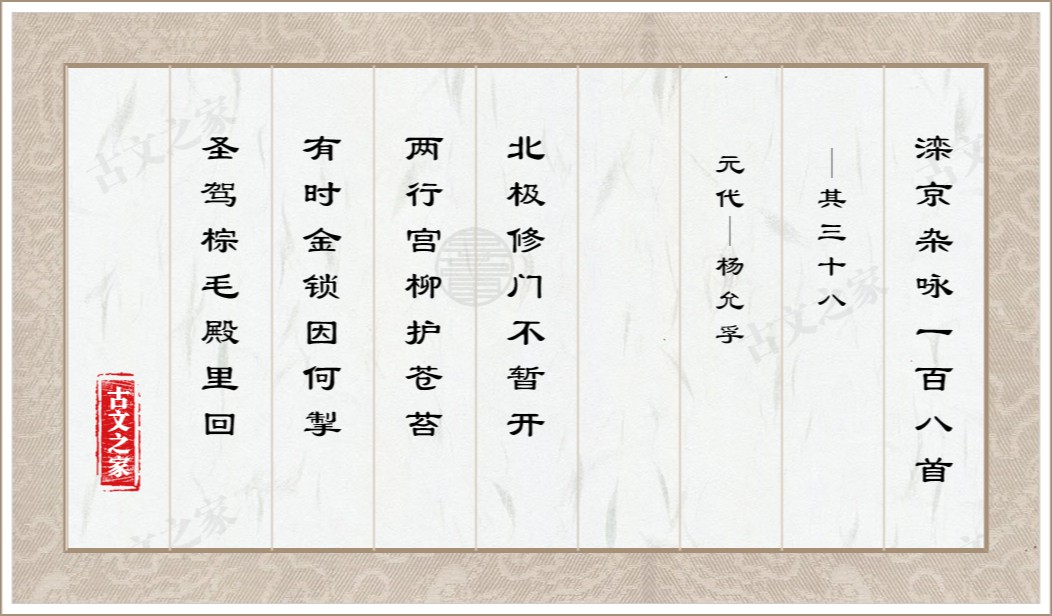 滦京杂咏一百八首
—其三十八
元代—杨允孚
北极修门不暂开
两行宫柳护苍苔
有时金锁因何掣
圣驾棕毛殿里回
古文之家
古文之家
古文之家
古文之家